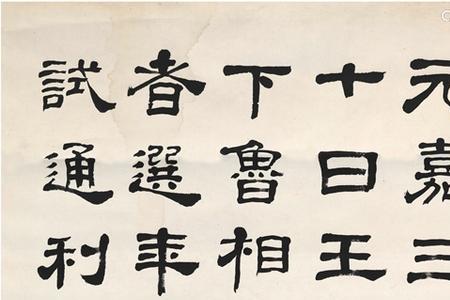 元嘉三
十日王
下魯相
者選年
試通利